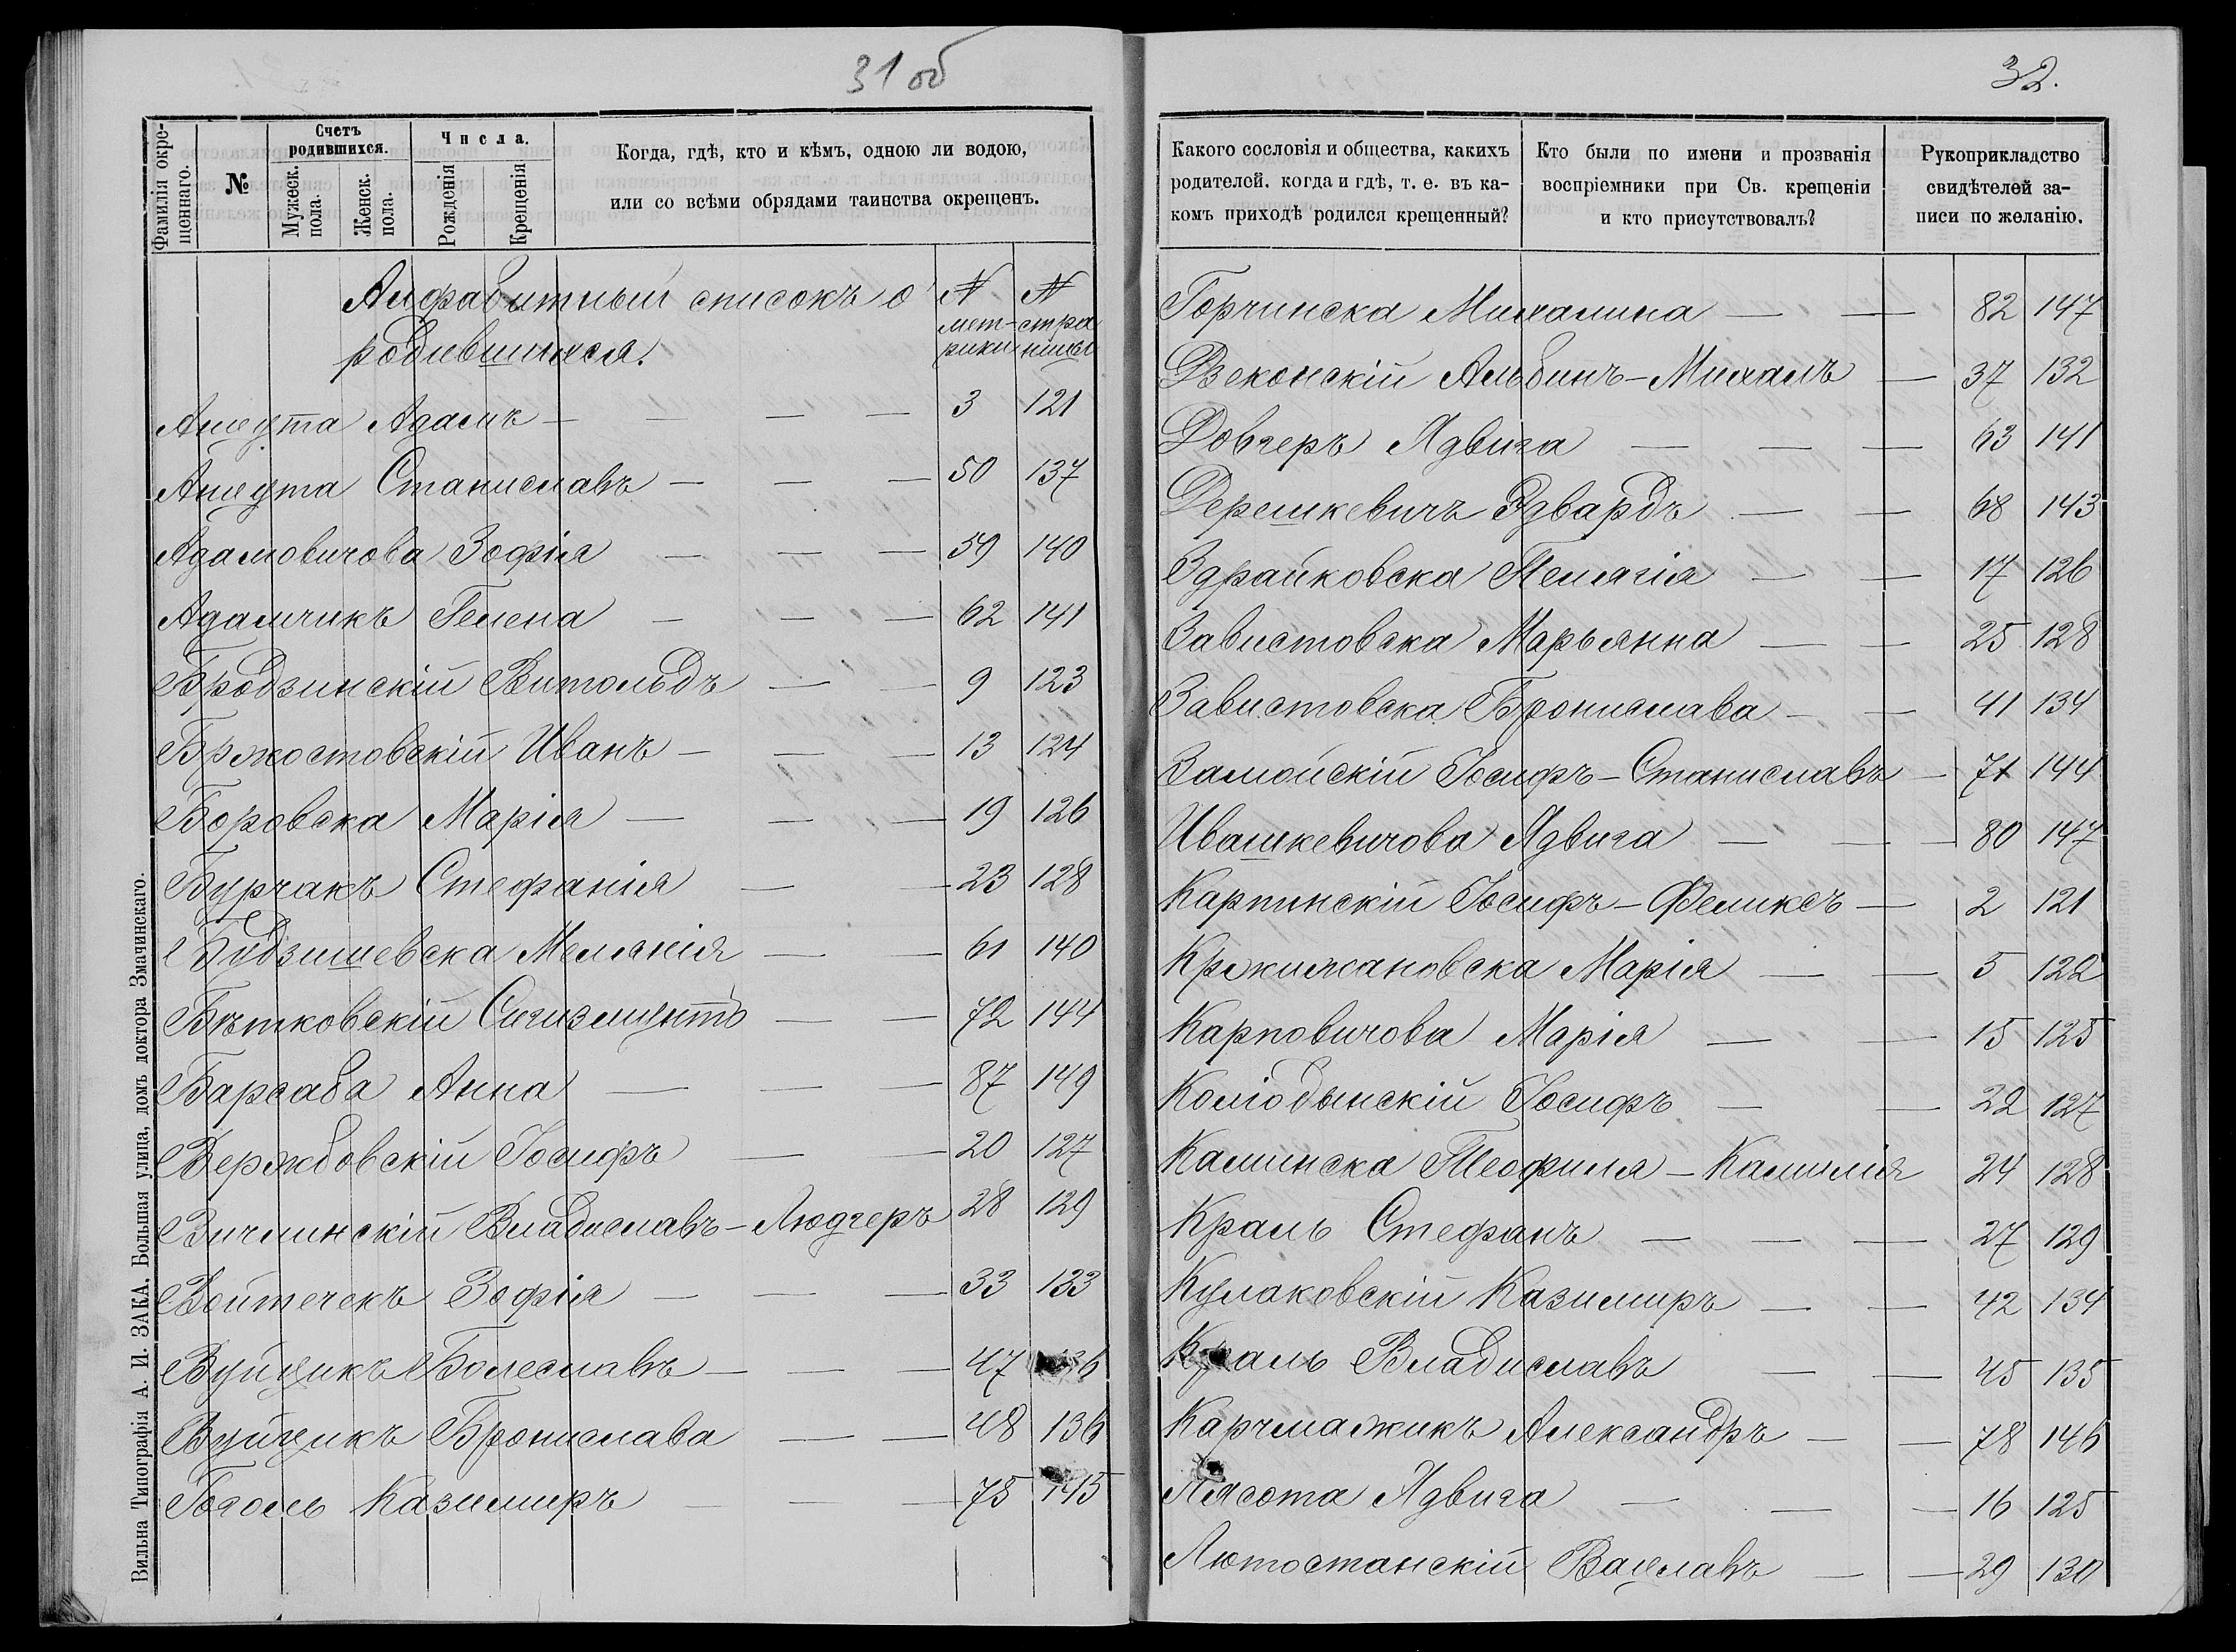 31 об
Фамилія окрещеннаго.
№
Счетъ родившихся.
Мужеск. пола.
Женск. пола.
Числа.
Рожденія
Крещенія
Когда, гдѣ, кто и кѣмъ, одною ли водою,
или со всѣми обрядами таинства окрещенъ.
Алфабитный списокъ о
родившихся.
№ метрики
№ страницы
Анцута Адамъ — — — — 3 121
Анцута Станиславъ — — — 50 137
Адамовичова Зофія — — — 59 140
Адамчикъ Гелена — — — 62 141
Бродзинскій Витольдъ — — 9 123
Бржостовскій Иванъ — — — 13 124
Боровска Марія — — — 19 126
Бурчакъ Стефанія — — 23 128
Будзишевска Меланія — — 61 140
Бѣтковскій Сигизмунтъ — — 72 144
Барсаба Анна — — — 87 149
Вержбовскій Іосифъ — — 20 127
Вичлинскій Владиславъ-Людгеръ 28 129
Войтечекъ Зофія — — — 33 133
Вуйцикъ Болеславъ — — — 47 136
Вуйцикъ Бронислава — — 48 136
Гоголь Казимиръ — — — 75 145
Вильна Типографія А. И. ЗАКА, Большая улица, домъ доктора Змачинскаго.
32.
Какого сословія и общества, какихъ
родителей. когда и гдѣ, т. е. въ ка-
комъ приходѣ родился крещенный?
Кто были по имени и прозванія
воспріемники при Св. крещеніи
и кто присутствовалъ?
Рукоприкладство
свидѣтелей за-
писи по желанію.
Горчинска Михалина — — 82 147
Дзеконскій Альбинъ-Михалъ — 37 132
Довгеръ Ядвига — — — 63 141
Дерешкевичъ Эдвардъ — — 68 143
Здрайковска Пелагія — — 17 126
Завистовска Марьянна — — 25 128
Завистовска Бронислава — — 41 134
Замойскій Іосифъ-Станиславъ — 71 144
Ивашкевичова Ядвига — — — 80 147
Карпинскій Іосифъ-Феликсъ — 2 121
Кржижановска Марія — — 5 122
Карповичова Марія — — 15 125
Колодынскій Іосифъ — — 22 127
Каминска Теофиля-Камилія 24 128
Краль Стефанъ — — — 27 129
Кулаковскій Казимиръ — — 42 134
Краль Владиславъ — — 45 135
Карчмажикъ Александръ — — 78 146
Лясота Ядвига — — — 16 125
Лютостанскій Вацлавъ — — 29 130